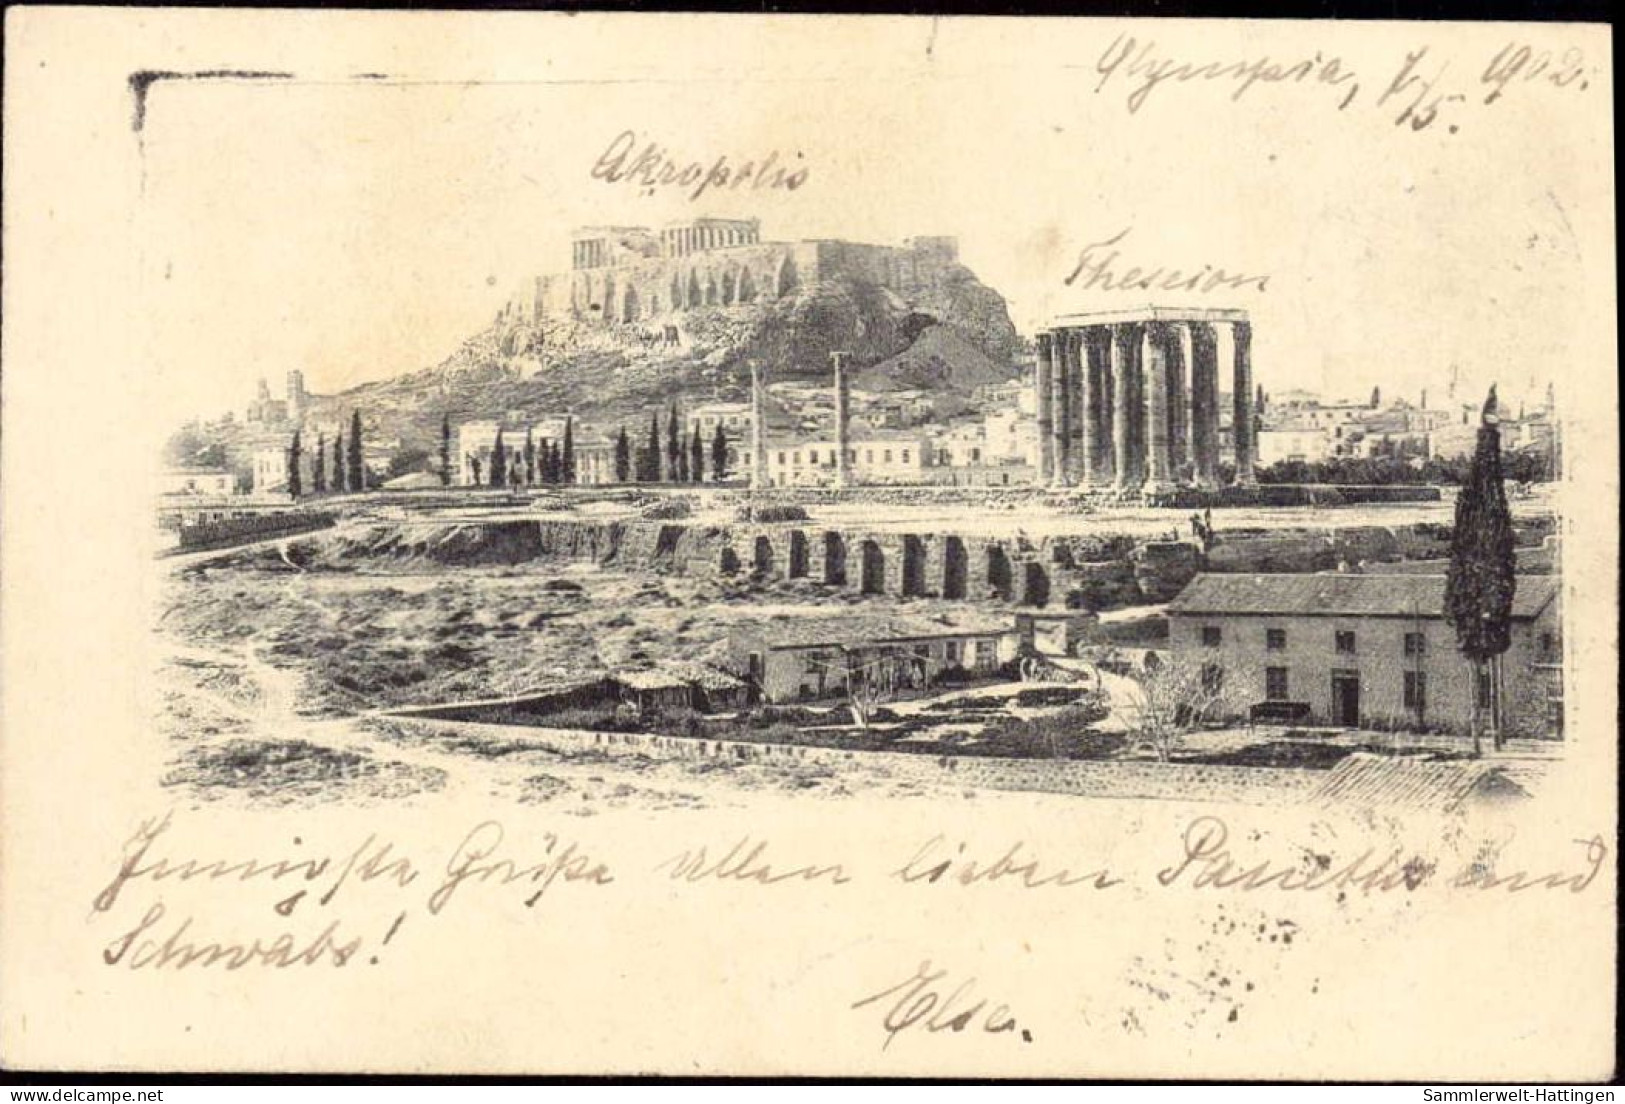 Olympia, 7/5. 1902.
Akropolis
Theseion
Innigste Grüße allen lieben Paneths und
Schwabs!
Else.
delcampe.net
Sammlerwelt-Hattingen